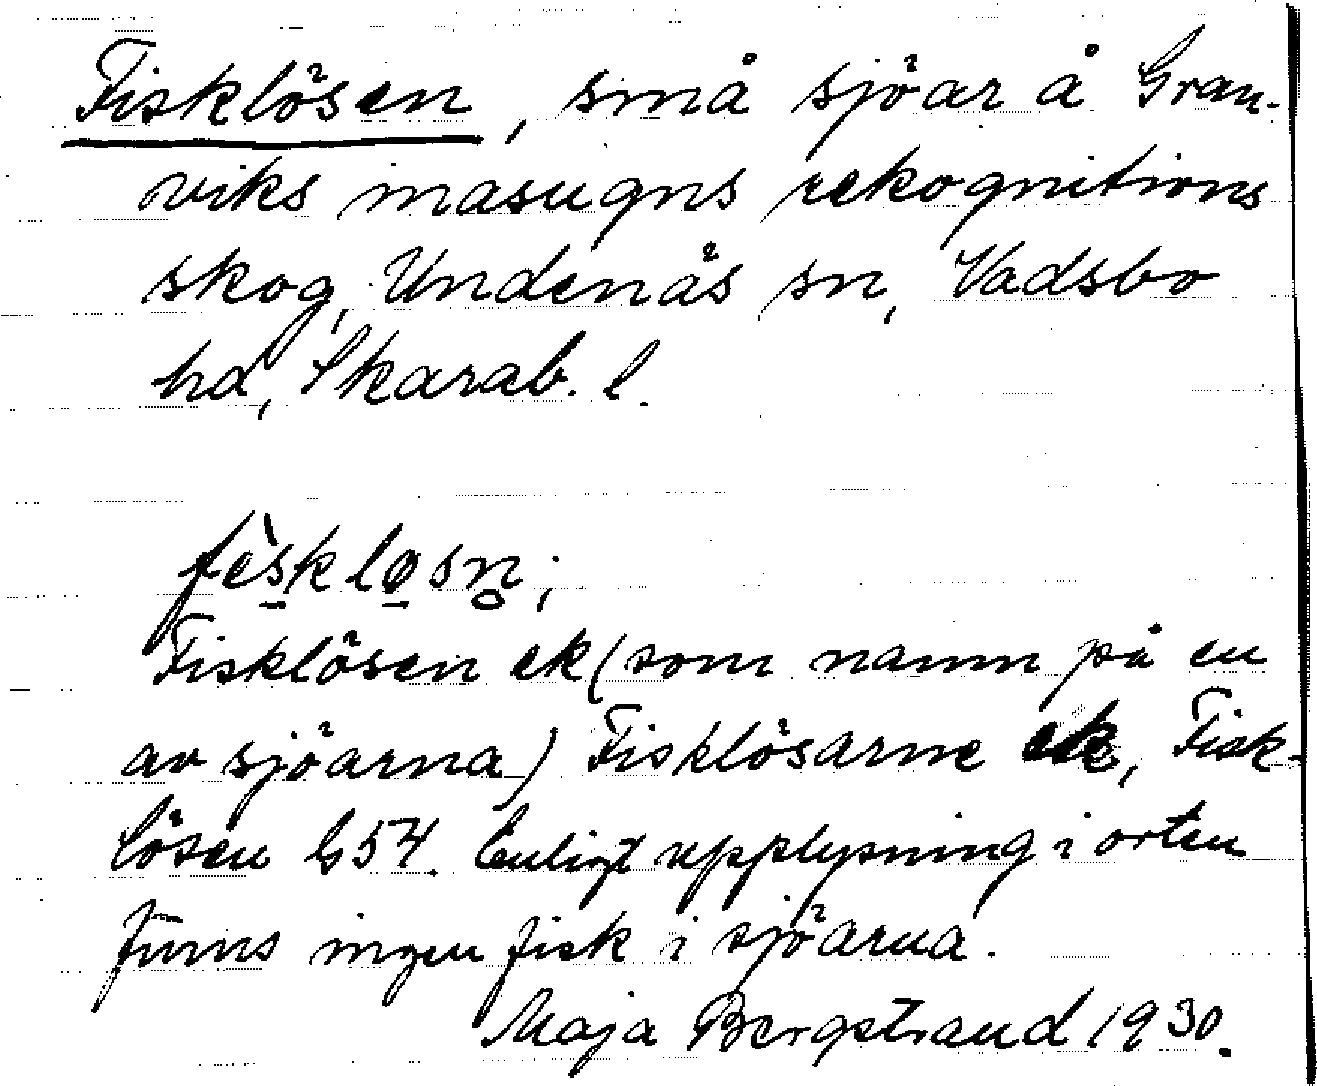 Fisklösen, små sjöar å Gran-
viks masugns rekognitions
skog, Undenäs sn, Vadsbo
hd, Skarab. l.
fèskløsn̥;
Fisklösen ek (som namn på en
av sjöarna) Fisklösarne ek, Fisk-
lösen G54. Enligt upplysning i orten
finns ingen fisk i sjöarna.
Maja Bergstrand 1930.